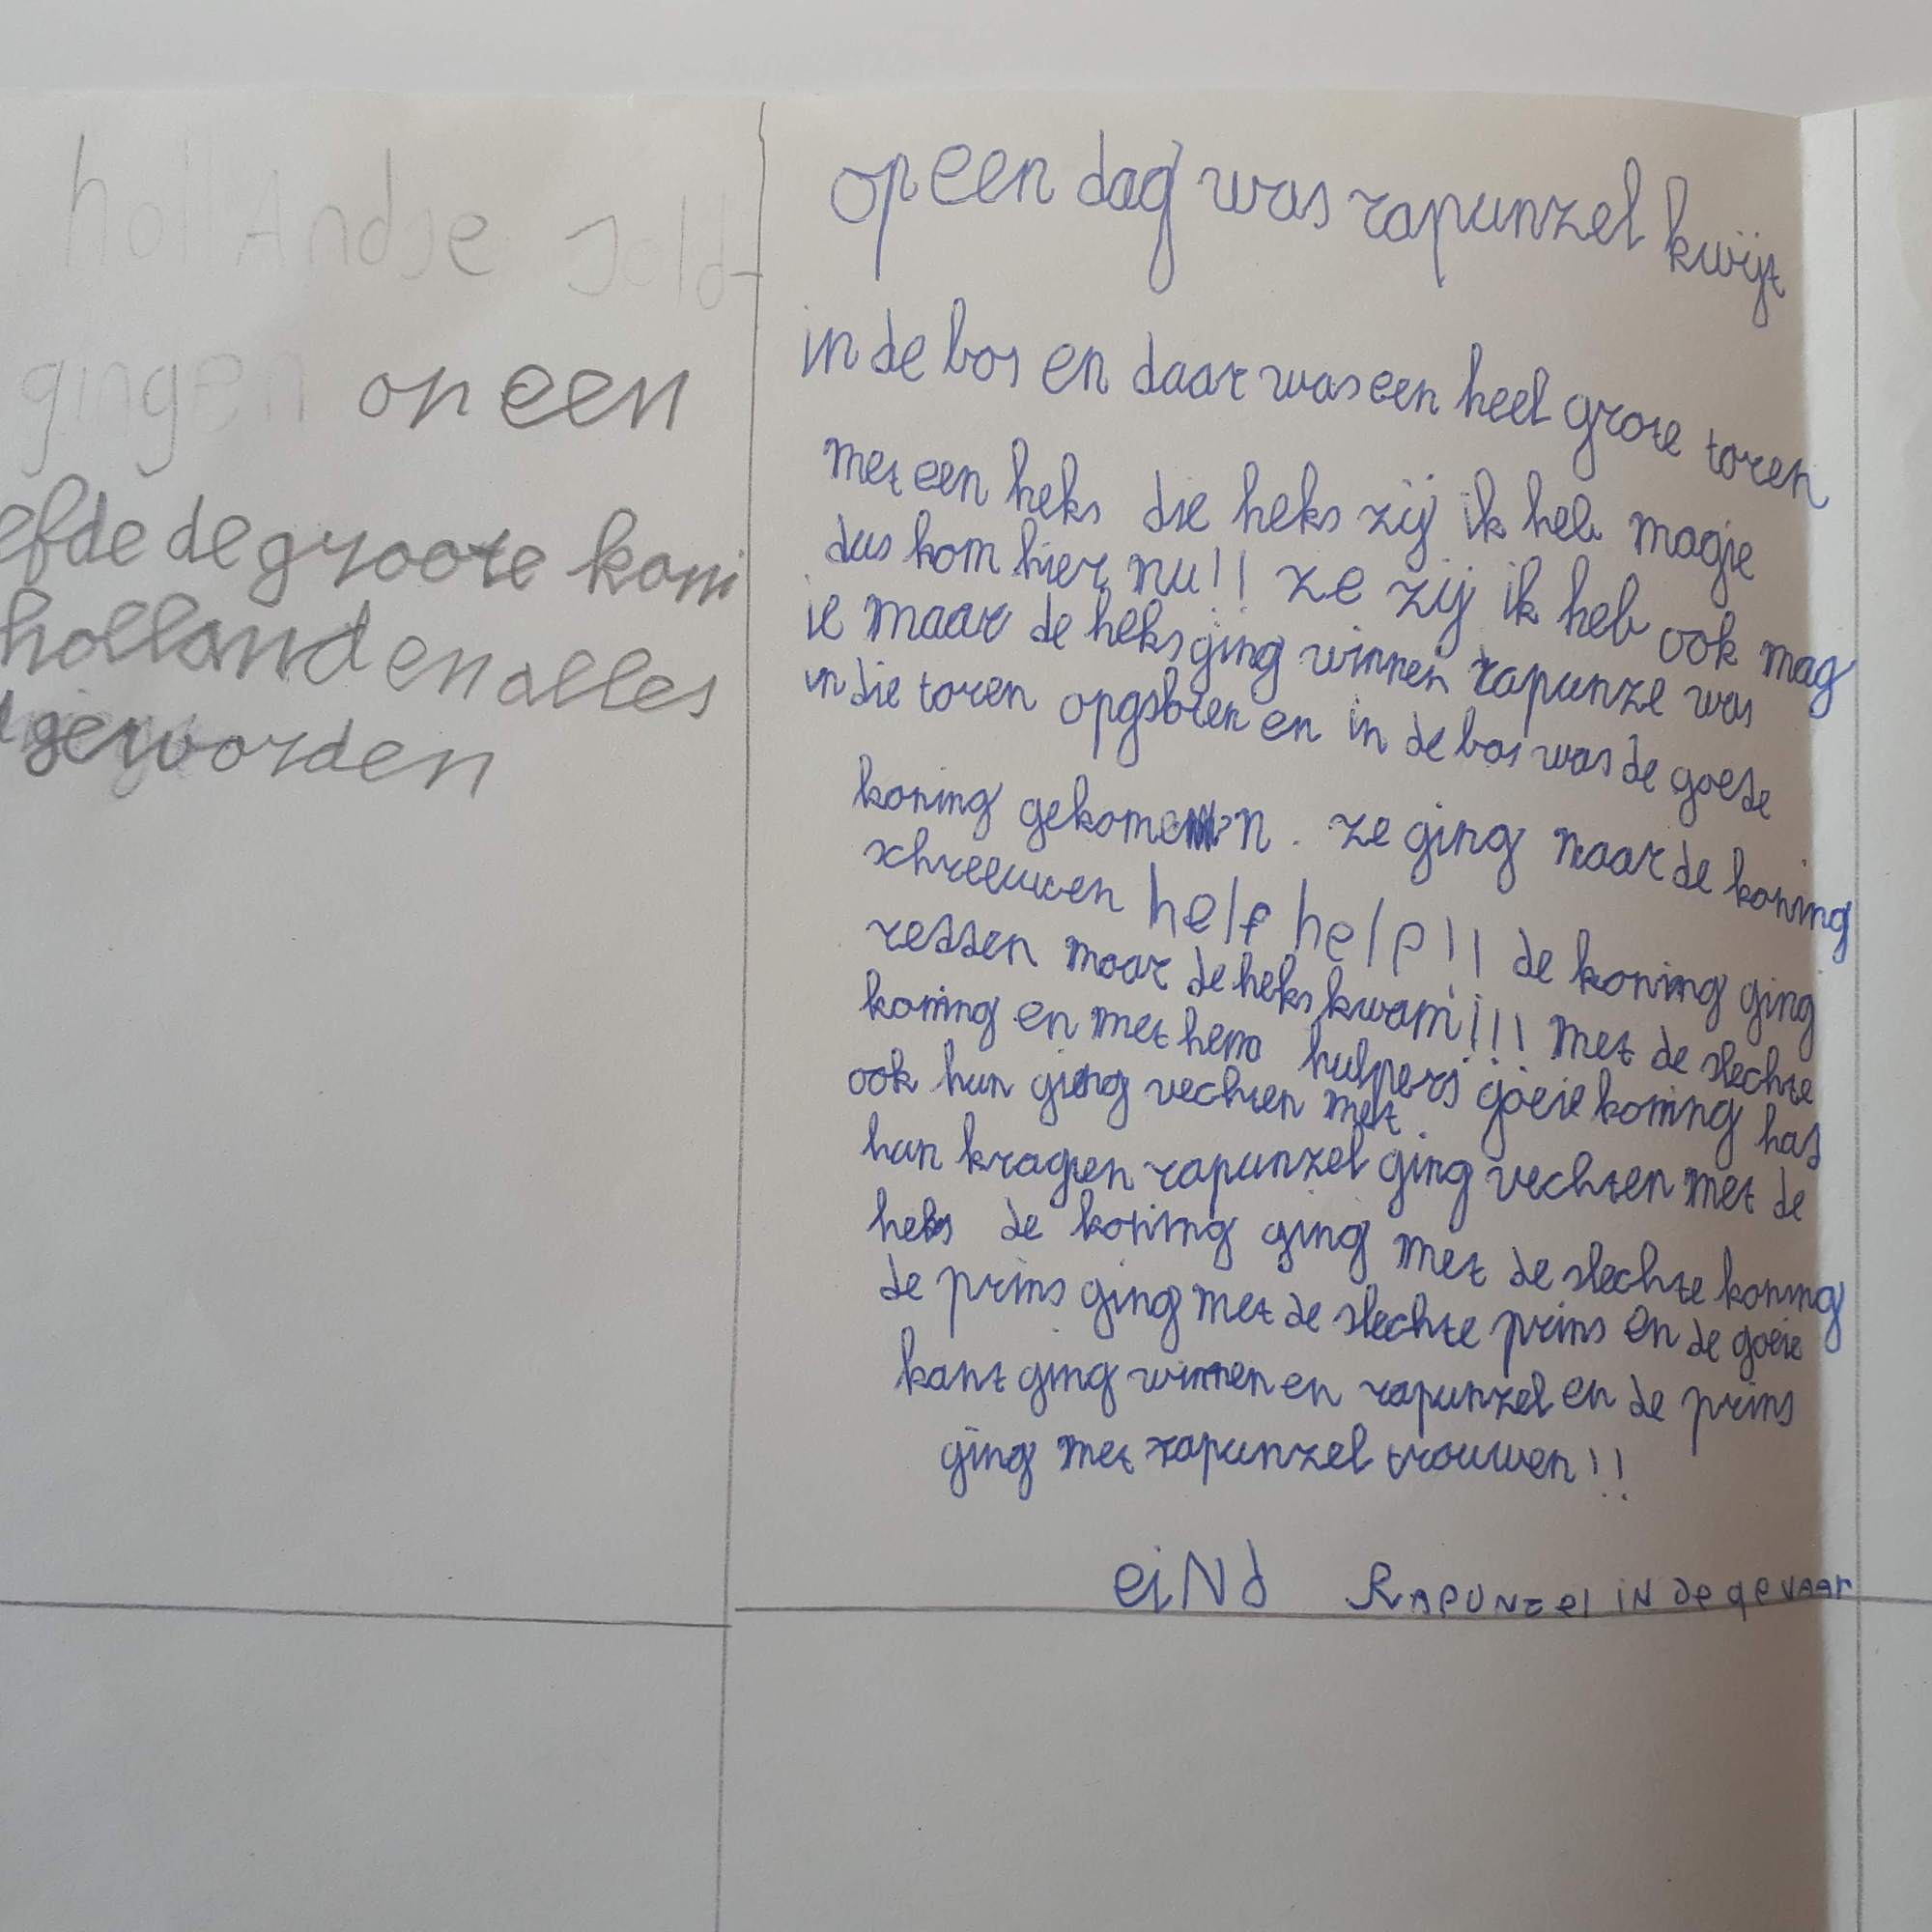 hollAndse sold-
gingen op een
efde de groote koni
holland en alles
geworden
op een dag was rapunzel kwijt
in de bos en daar was een heel grote toren
met een heks die heks zij ik heb magie
dus kom hier nu!! ze zij ik heb ook mag
ie maar de heks ging winnen rapunze was
in die toren opgsloten en in de bos was de goede
koning gekomen. ze ging naar de koning
schreeuwen help help!! de koning ging
redden maar de heks kwam!!! met de slechte
koning en met hem hulpers goeie koning had
ook hun ging vechten met
hun kragten rapunzel ging vechten met de
heks de koning ging met de slechte koning
de prins ging met de slechte prins en de goeie
kant ging winnen en rapunzel en de prins
ging met rapunzel trouwen!!
eiNd RAPUNzel iN de gevaar